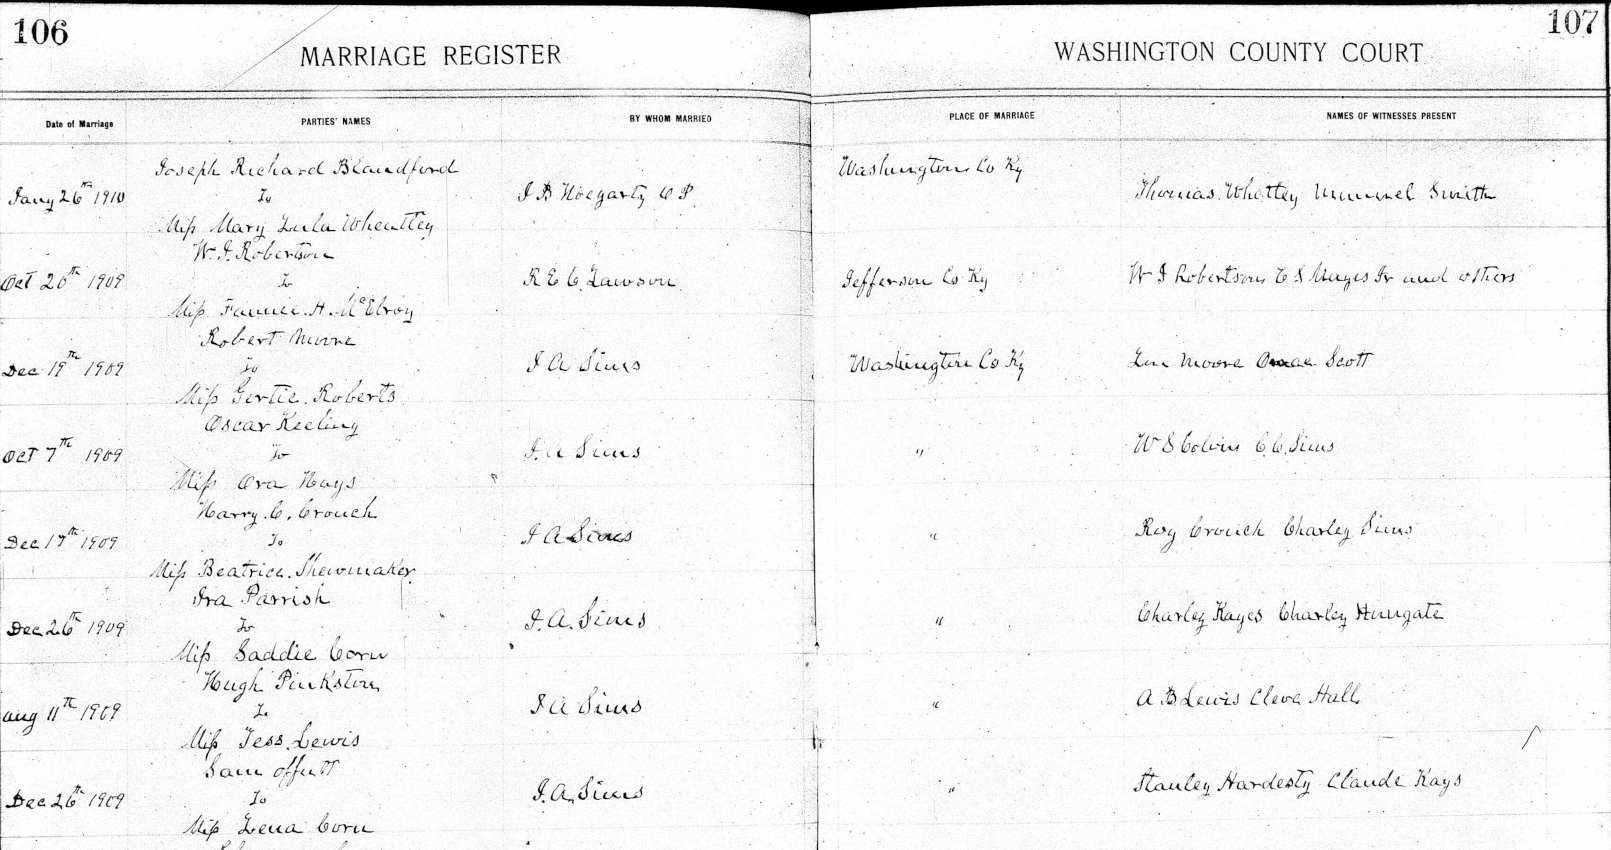 106
107
MARRIAGE REGISTER
WASHINGTON COUNTY COURT
Date of Marriage PARTIES' NAMES BY WHOM MARRIED PLACE OF MARRIAGE NAMES OF WITNESSES PRESENT
Joseph Richard Blandford
Jany 26th 1910 To J B Hoegarty C P. Washington Co Ky Thomas Whatley Smith
Miss Mary Lula Wheatley
W. I. Robertson
Oct 20th 1909 To R E C. Lawson Jefferson Co Ky W I Robertson C S Mayes Jr and others
Miss Fannie. H. McElroy
Robert Moore
Dec 19th 1909 To J A Sims Washington Co Ky Moore Scott
Miss Gertie. Roberts
Oscar Keeling
Oct 7th 1909 To J. A Sims " W S Colvin C. C. Sims
Miss Ora Hays
Harry. C. Crouch
Dec 17th 1909 To J A Sims " Roy Crouch Charley Sims
Miss Beatrice. Shewmaker
Ira Parrish
Dec 26th 1909 To J. A. Sims " Charley Kayes Charley Hungate
Miss Saddie Corn
Hugh Pinkston
Aug 11th 1909 To J A Sims " A B Lewis Cleve Hall
Miss Tess. Lewis
Sam Offutt
Dec 26th 1909 To J. A. Sims " Stanley Hardesty Claude Kays
Miss Lena Corn